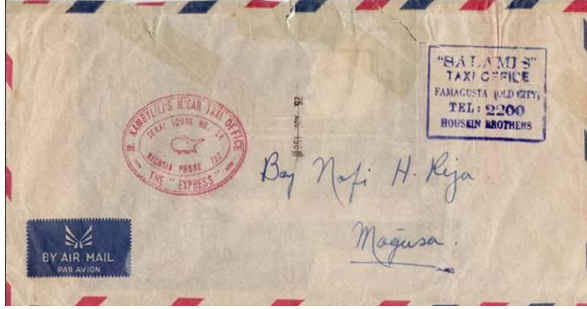 "SALAMIS"
TAXI OFFICE
FAMAGUSTA (OLD CITY)
TEL: 2200
HOUSEIN BROTHERS
M. KAMBYLLI'S M/CAR TAXI OFFICE
SERAI SQURE NO.
NICOSIA PHONE
THE "EXPRESS"
Bay Nafi H. Riza
Mağusa.
BY AIR MAIL
PAR AVION